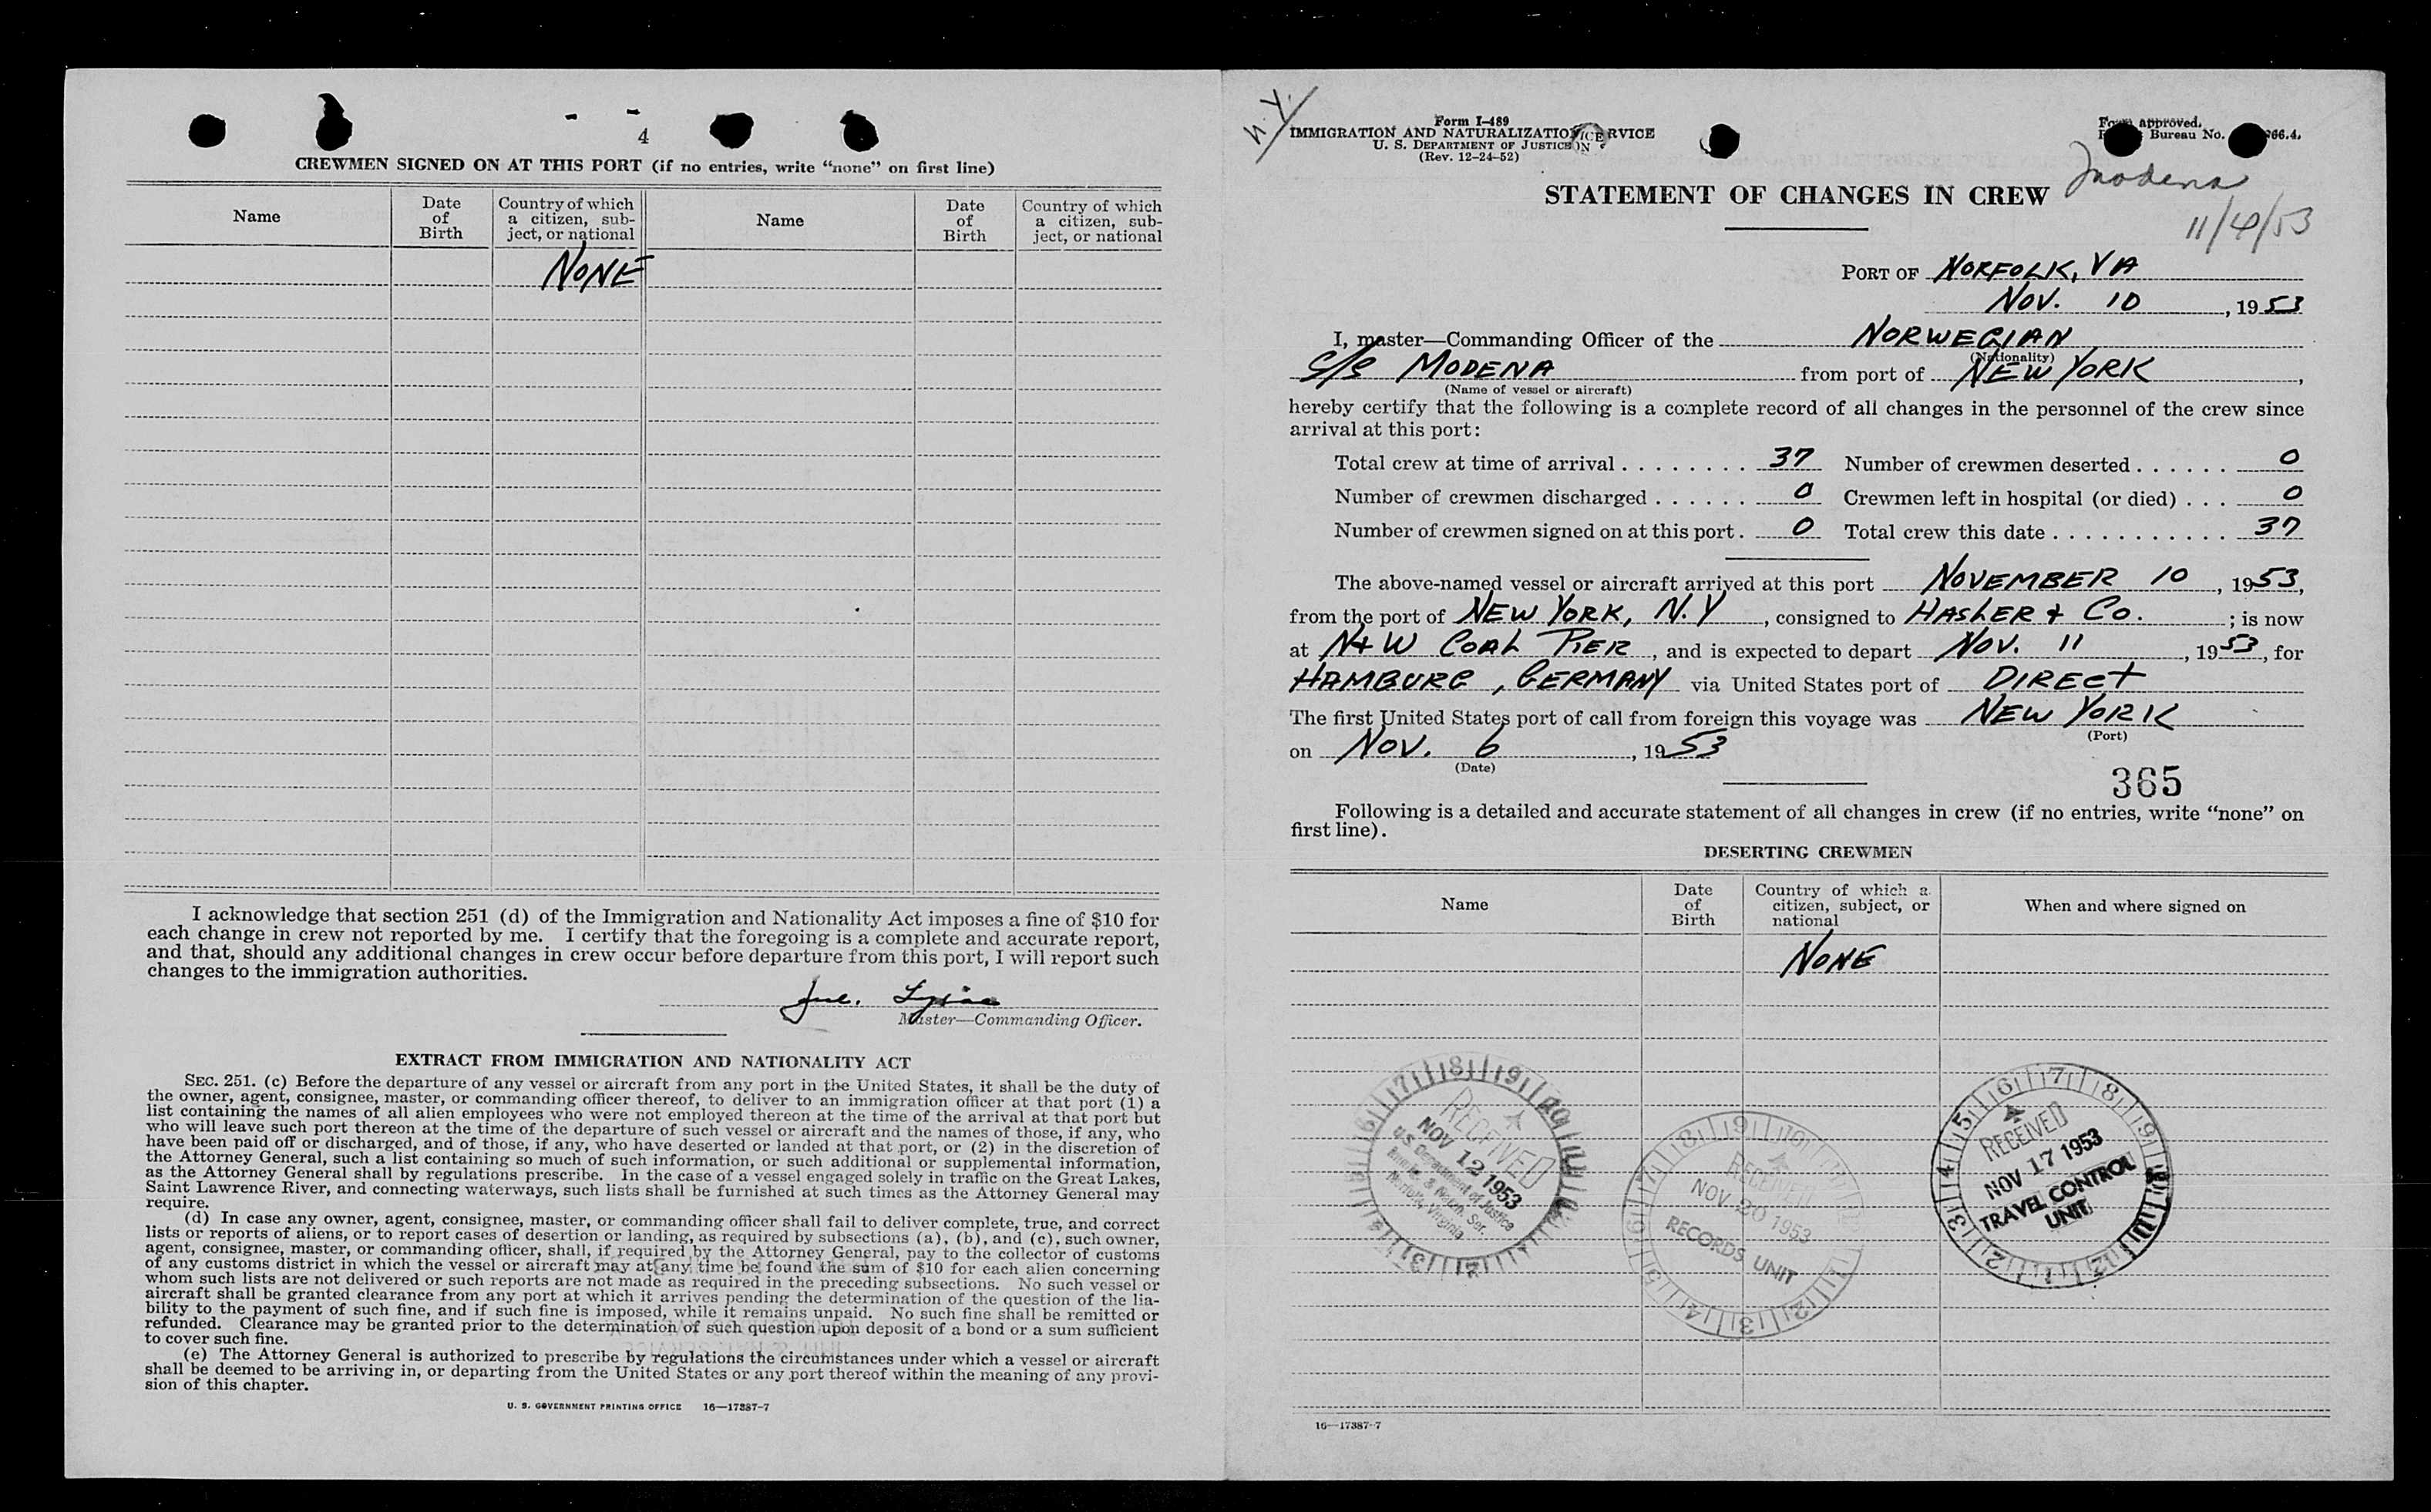 4
CREWMEN SIGNED ON AT THIS PORT (if no entries, write "none" on first line)
Name
Date of Birth
Country of which a citizen, sub-ject, or national
Name
Date of Birth
Country of which a citizen, sub-ject, or national
NONE
I acknowledge that section 251 (d) of the Immigration and Nationality Act imposes a fine of $10 for
each change in crew not reported by me. I certify that the foregoing is a complete and accurate report,
and that, should any additional changes in crew occur before departure from this port, I will report such
changes to the immigration authorities.
Master—Commanding Officer.
EXTRACT FROM IMMIGRATION AND NATIONALITY ACT
SEC. 251. (c) Before the departure of any vessel or aircraft from any port in the United States, it shall be the duty of
the owner, agent, consignee, master, or commanding officer thereof, to deliver to an immigration officer at that port (1) a
list containing the names of all alien employees who were not employed thereon at the time of the arrival at that port but
who will leave such port thereon at the time of the departure of such vessel or aircraft and the names of those, if any, who
have been paid off or discharged, and of those, if any, who have deserted or landed at that port, or (2) in the discretion of
the Attorney General, such a list containing so much of such information, or such additional or supplemental information,
as the Attorney General shall by regulations prescribe. In the case of a vessel engaged solely in traffic on the Great Lakes,
Saint Lawrence River, and connecting waterways, such lists shall be furnished at such times as the Attorney General may
require.
(d) In case any owner, agent, consignee, master, or commanding officer shall fail to deliver complete, true, and correct
lists or reports of aliens, or to report cases of desertion or landing, as required by subsections (a), (b), and (c), such owner,
agent, consignee, master, or commanding officer, shall, if required by the Attorney General, pay to the collector of customs
of any customs district in which the vessel or aircraft may at any time be found the sum of $10 for each alien concerning
whom such lists are not delivered or such reports are not made as required in the preceding subsections. No such vessel or
aircraft shall be granted clearance from any port at which it arrives pending the determination of the question of the lia-
bility to the payment of such fine, and if such fine is imposed, while it remains unpaid. No such fine shall be remitted or
refunded. Clearance may be granted prior to the determination of such question upon deposit of a bond or a sum sufficient
to cover such fine.
(e) The Attorney General is authorized to prescribe by regulations the circumstances under which a vessel or aircraft
shall be deemed to be arriving in, or departing from the United States or any port thereof within the meaning of any provi-
sion of this chapter.
U. S. GOVERNMENT PRINTING OFFICE 16—17387-7
N.Y.
Form I-489
IMMIGRATION AND NATURALIZATION SERVICE
U. S. DEPARTMENT OF JUSTICE
(Rev. 12-24-52)
Form approved.
Bureau No. 66.4.
Modena
11/4/53
STATEMENT OF CHANGES IN CREW
PORT OF NORFOLK, VA
NOV. 10, 1953
I, master—Commanding Officer of the NORWEGIAN
(Nationality)
S/S MODENA from port of NEW YORK,
(Name of vessel or aircraft)
hereby certify that the following is a complete record of all changes in the personnel of the crew since
arrival at this port:
Total crew at time of arrival . . . . . . . . 37 Number of crewmen deserted . . . . . . 0
Number of crewmen discharged . . . . . . 0 Crewmen left in hospital (or died) . . . 0
Number of crewmen signed on at this port . 0 Total crew this date . . . . . . . . . . . 37
The above-named vessel or aircraft arrived at this port NOVEMBER 10, 1953,
from the port of NEW YORK, N.Y, consigned to HASLER & Co. ; is now
at N+W COAL PIER, and is expected to depart NOV. 11, 1953, for
HAMBURG, GERMANY via United States port of DIRECT
The first United States port of call from foreign this voyage was NEW YORK
(Port)
on NOV. 6, 1953
(Date)
365
Following is a detailed and accurate statement of all changes in crew (if no entries, write "none" on
first line).
DESERTING CREWMEN
Name
Date of Birth
Country of which a citizen, subject, or national
When and where signed on
NONE
RECEIVED
NOV 12 1953
U.S Department of Justice
Immig. & Natzn. Ser.
Norfolk, Virginia
RECEIVED
NOV 20 1953
RECORDS UNIT
RECEIVED
NOV 17 1953
TRAVEL CONTROL
UNIT
16—17387-7